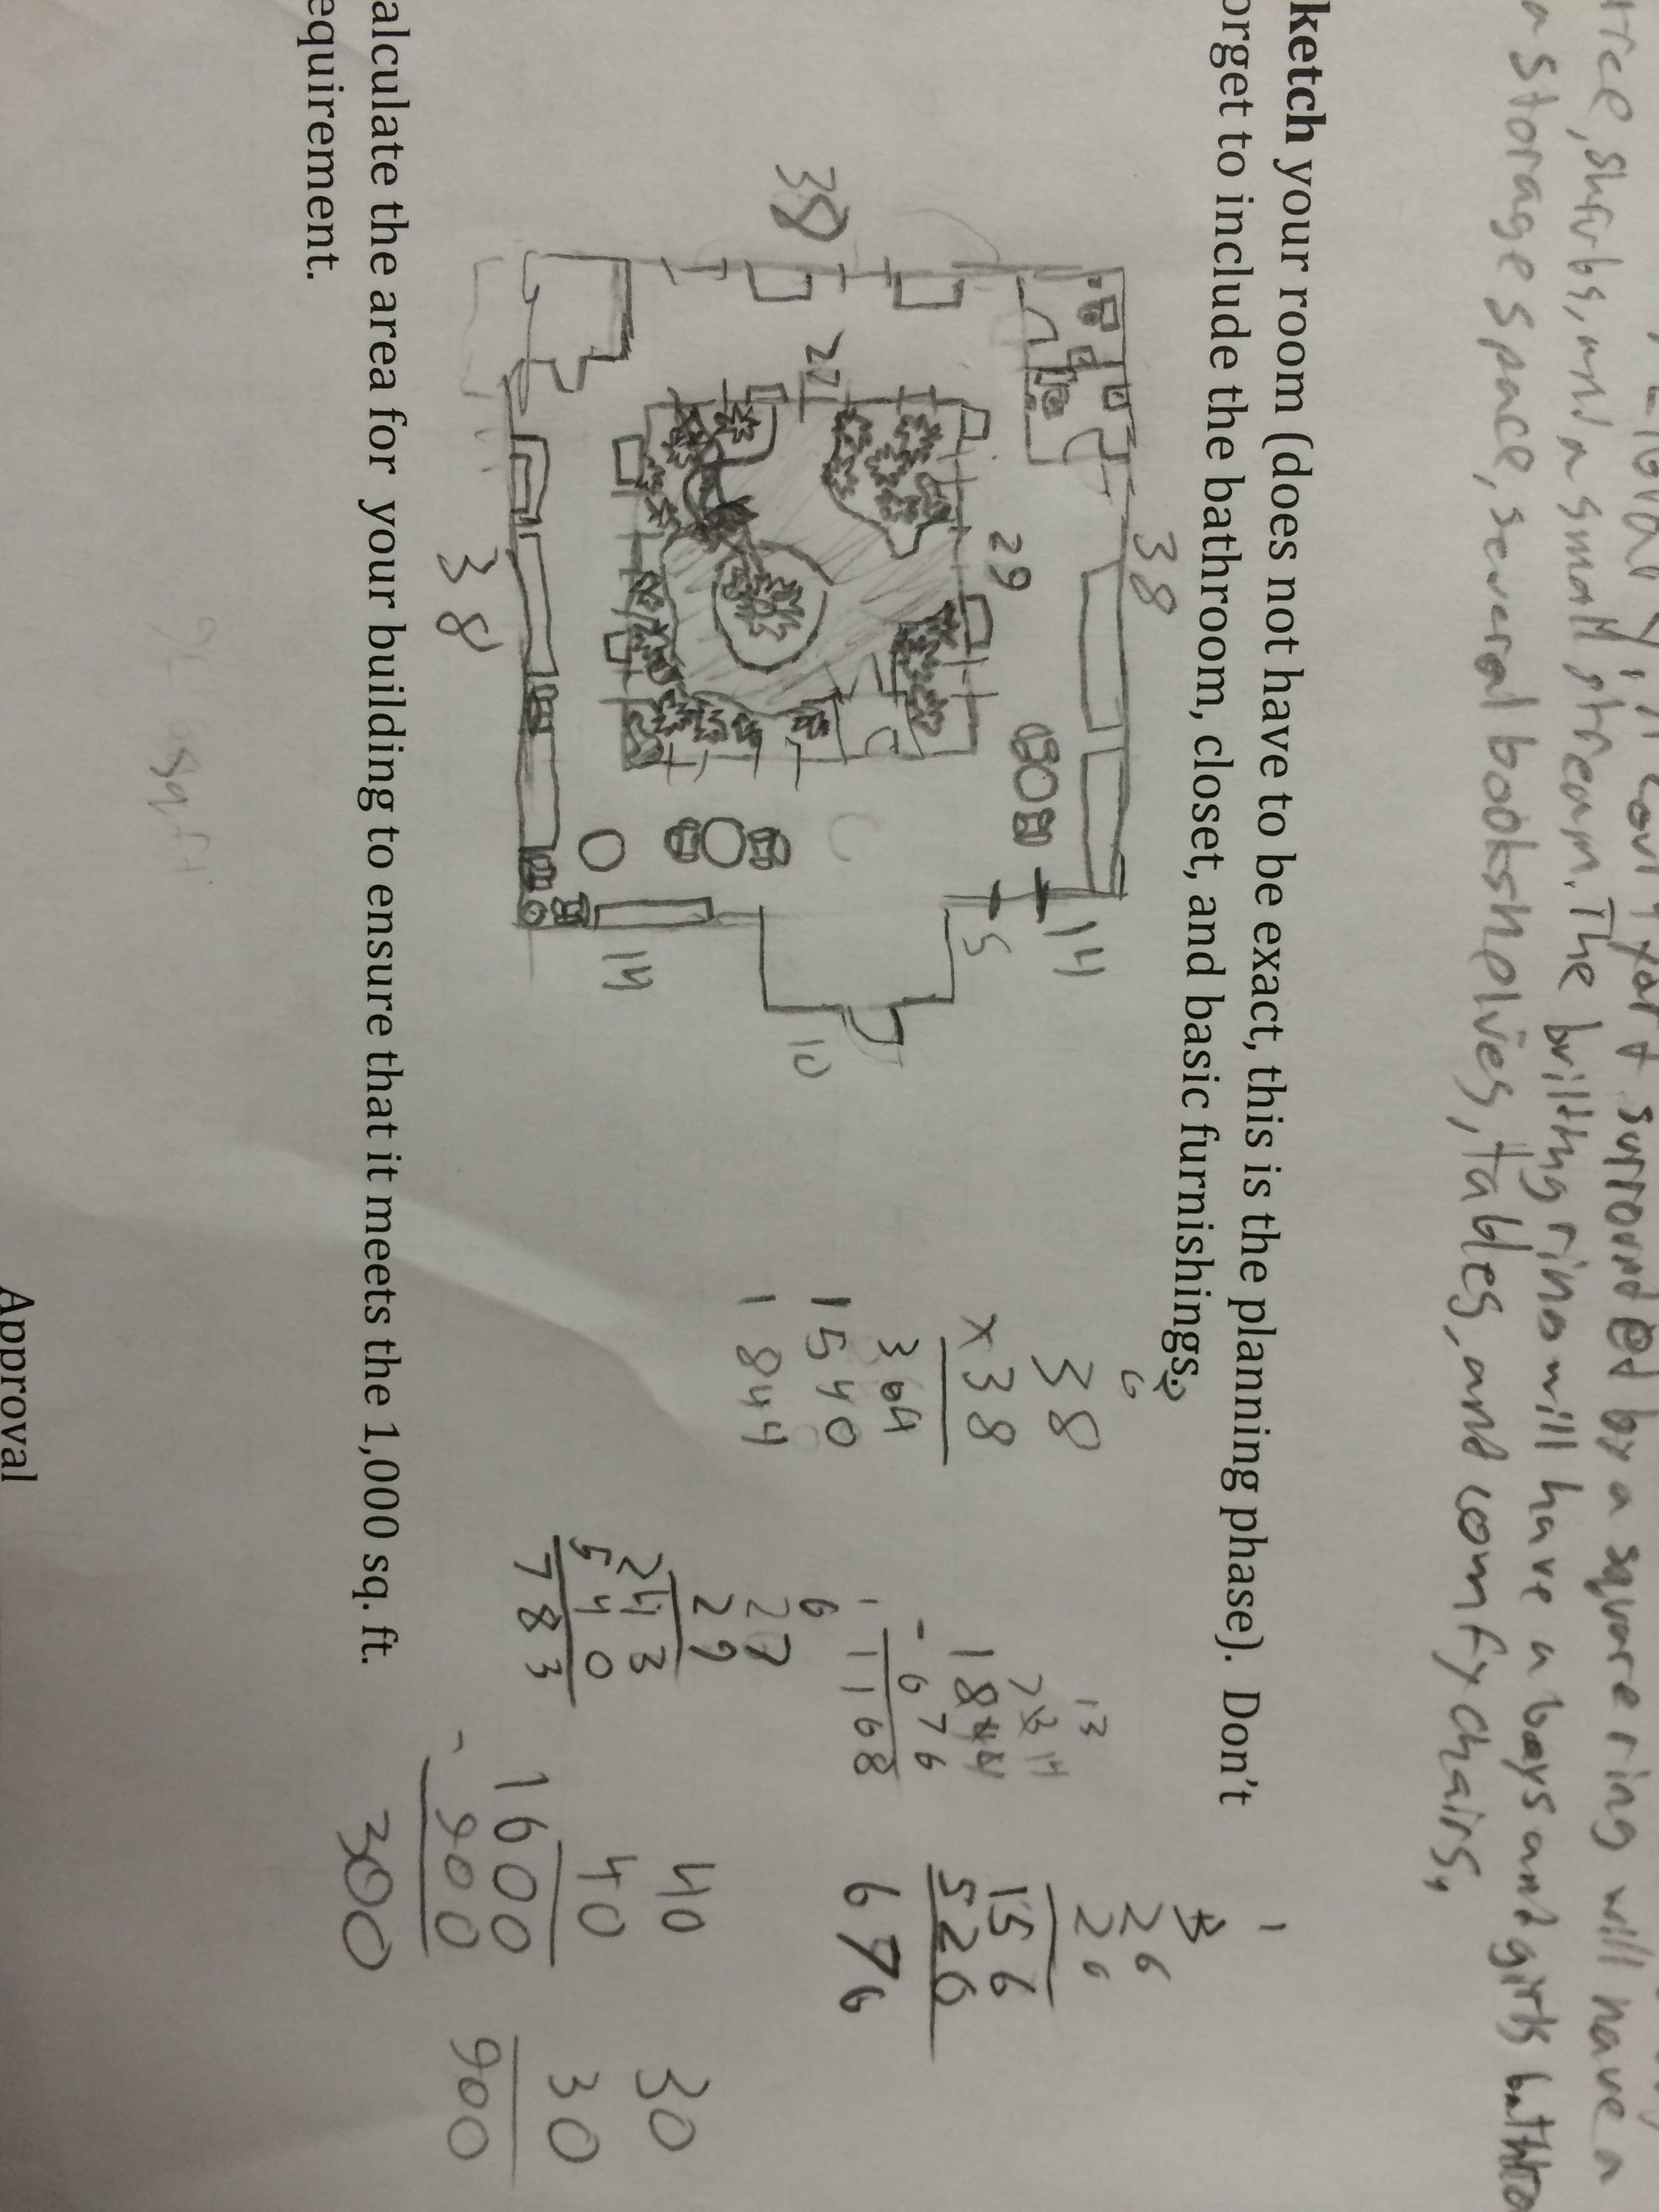 surrounded by a square ring will have a
tree, shrubs, and a small stream. The brilthing rino will have a boys and girls bathroo
a storage space, several bookshelves, tables, and comfy chairs,
ketch your room (does not have to be exact, this is the planning phase). Don't
orget to include the bathroom, closet, and basic furnishings.
38
38
29
27
38
14
5
10
14
6
38
x38
364
1540
1844
13
1844
- 676
1168
6
27
29
243
540
783
1
26
26
156
520
676
40
40
1600
- 900
300
30
30
900
alculate the area for your building to ensure that it meets the 1,000 sq. ft.
equirement.
sq ft
Approval